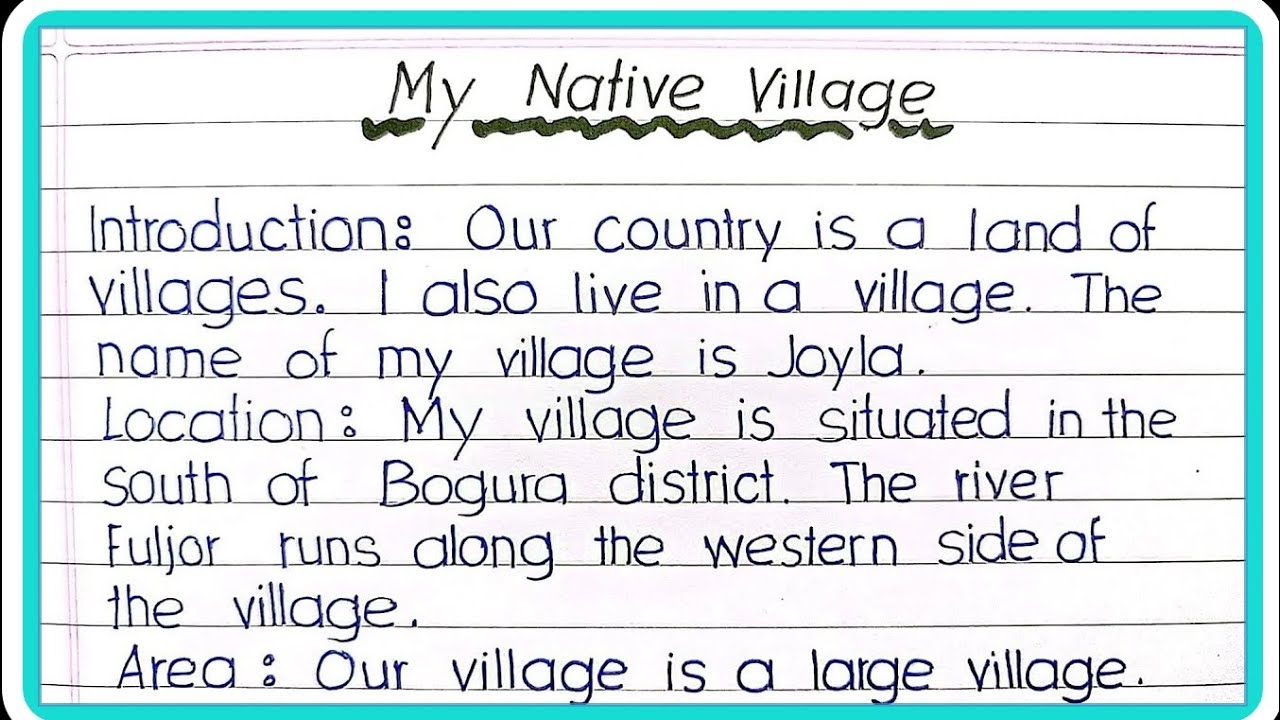 My Native Village
Introduction: Our country is a land of
villages. I also live in a village. The
name of my village is Joyla.
Location: My village is situated in the
south of Bogura district. The river
Fuljor runs along the western side of
the village.
Area: Our village is a large village.